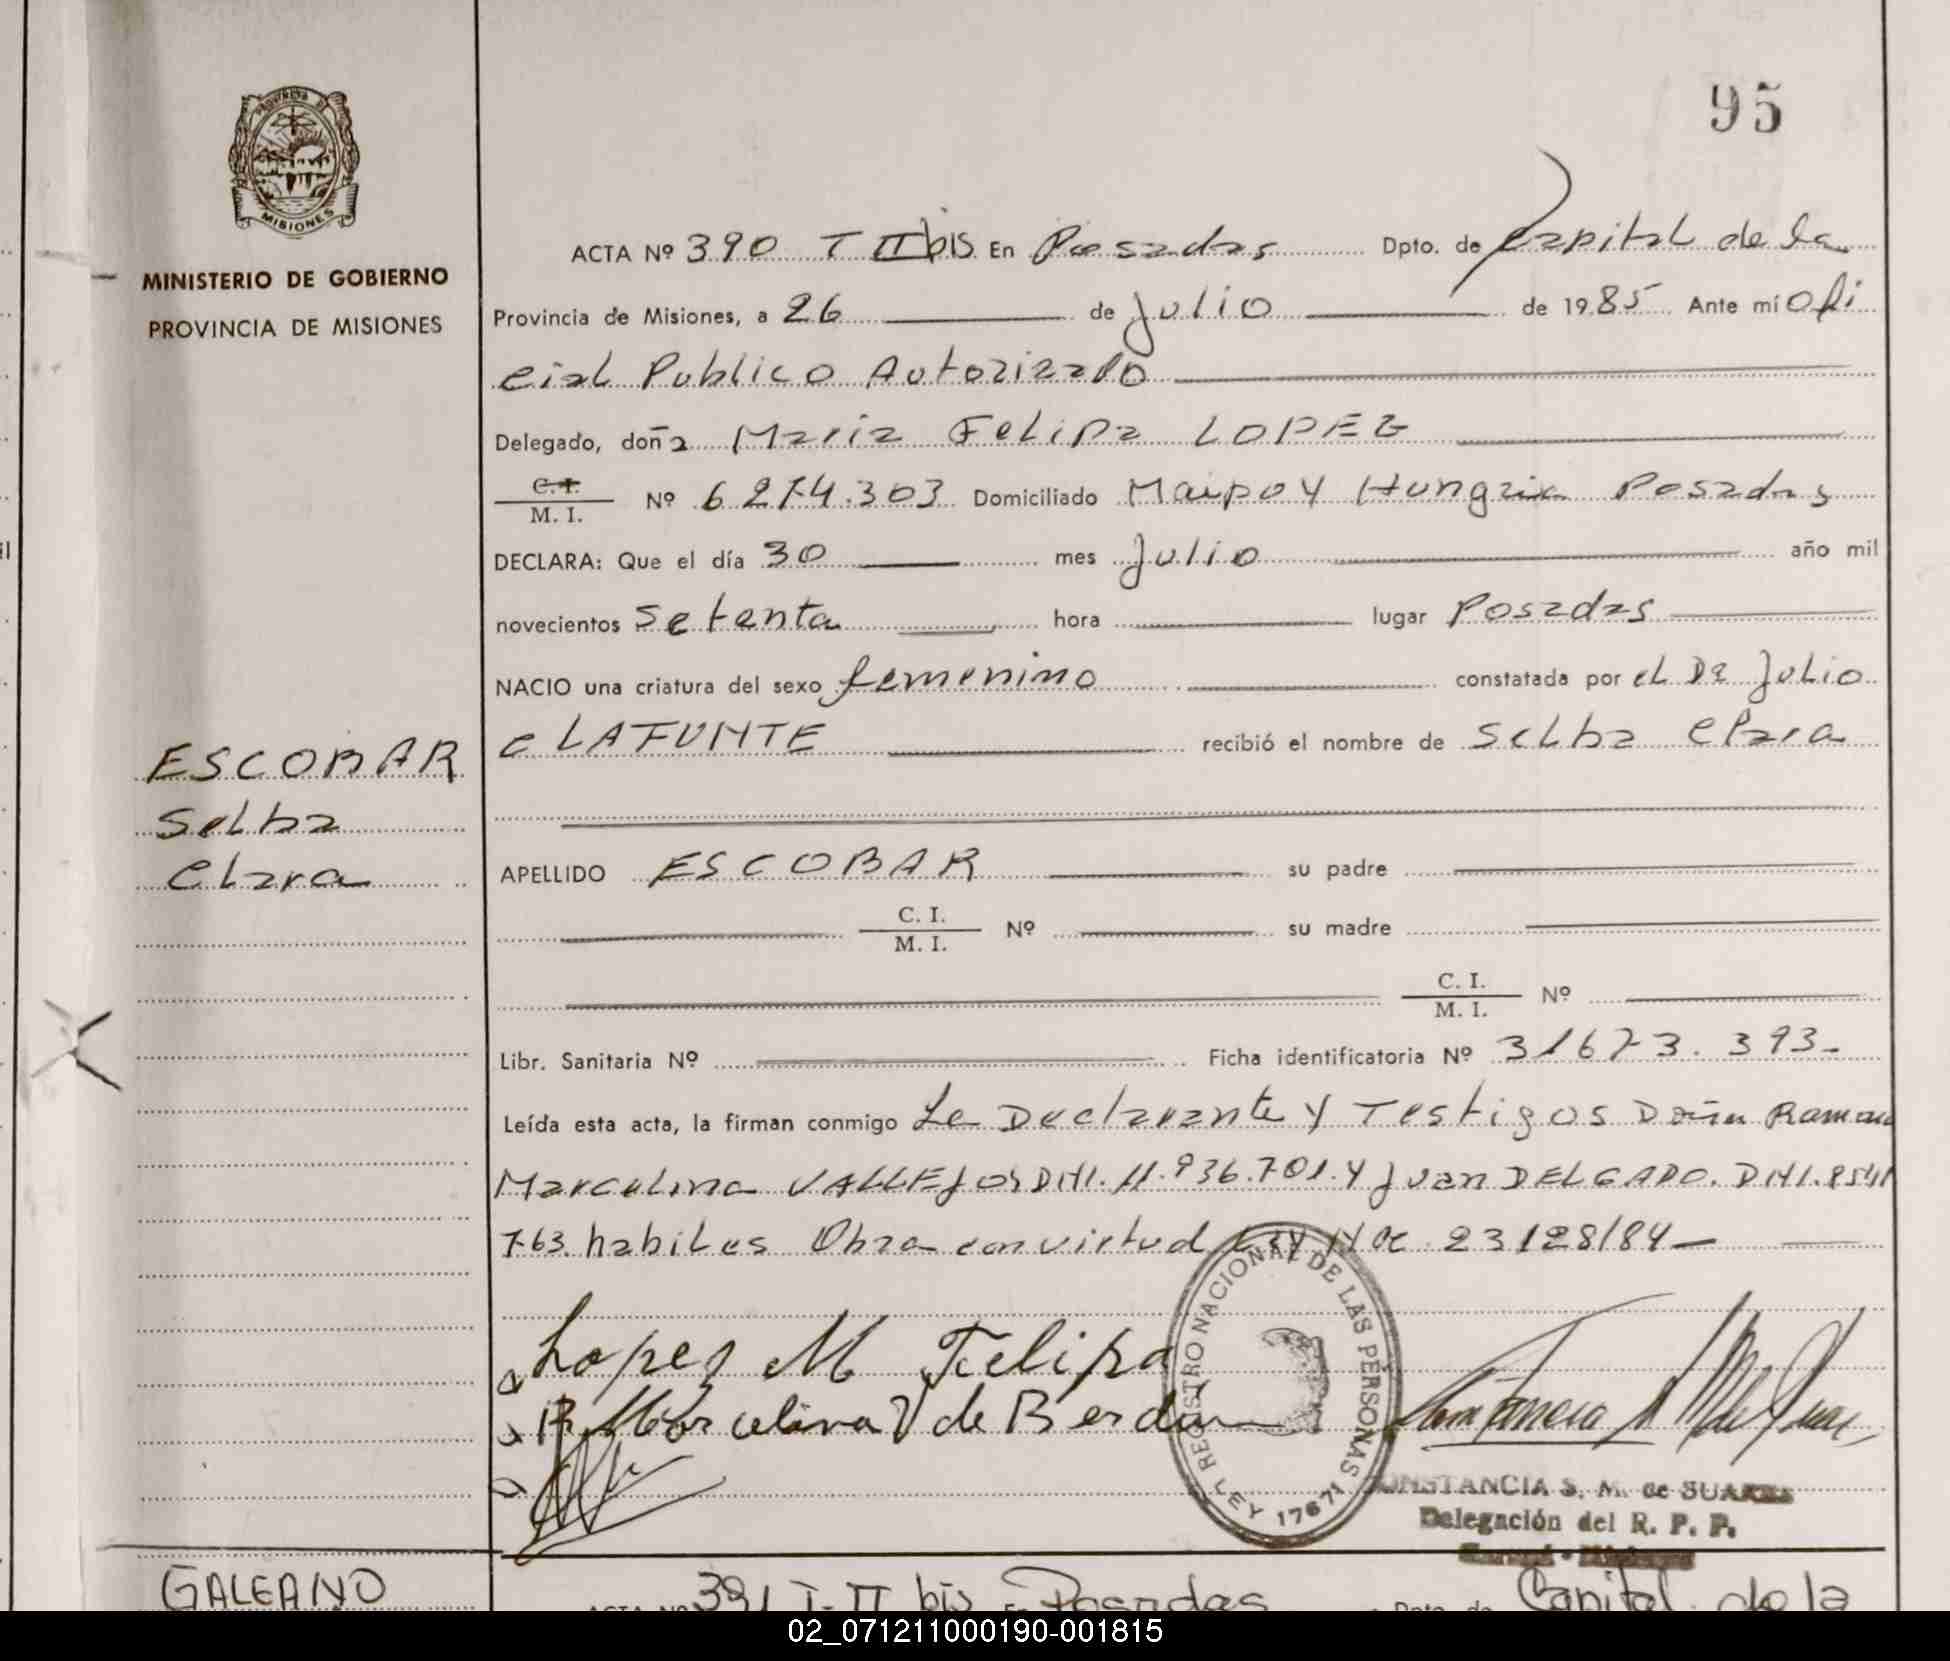 95
PROVINCIA DE
MISIONES
MINISTERIO DE GOBIERNO
PROVINCIA DE MISIONES
ACTA Nº 390 T II bis En Posadas Dpto. de Capital de la
Provincia de Misiones, a 26 de Julio de 1985 Ante mí Ofi
cial Publico Autorizado
Delegado, doña Maria Felipa LOPEZ
C. I.
M. I. Nº 6274.303 Domiciliado Maipo y Hungria Posadas
DECLARA: Que el día 30 mes Julio año mil
novecientos setenta hora lugar Posadas
NACIO una criatura del sexo femenino constatada por el Dr Julio
c LAFUNTE recibió el nombre de Selba Clara
ESCOBAR
Selba
Clara
APELLIDO ESCOBAR su padre
C. I.
M. I. Nº su madre
C. I.
M. I. Nº
Libr. Sanitaria Nº Ficha identificatoria Nº 31673.393-
Leída esta acta, la firman conmigo La Declarante y Testigos Doña Ramona
Marcelina VALLEJOS DNI. 11.936.701. y Juan DELGADO. DNI.
763. habiles Obra en virtud 23128/84
Lopez M Felipa
R Marcelina V de Berdun
REGISTRO NACIONAL DE LAS PERSONAS
LEY 17671
CONSTANCIA S. M. de SUAREZ
Delegación del R. P. P.
GALEANO
ACTA Nº 391 T-II bis En Posadas Dpto. de Capital de la
02_071211000190-001815